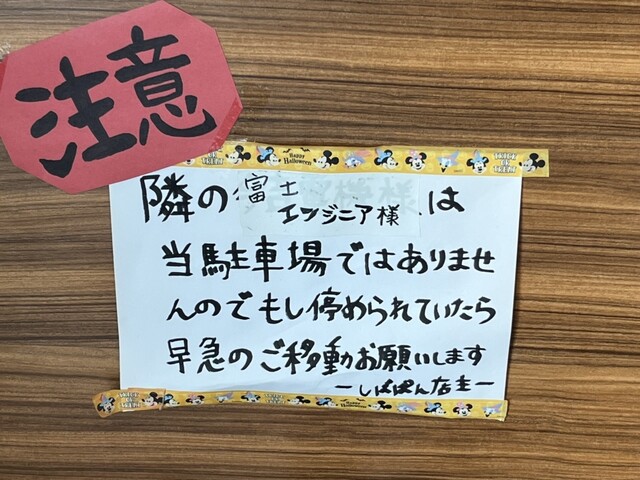 注意
隣の富士
エンジニア様は
当駐車場ではありませ
んのでもし停められていたら
早急のご移動お願いします
ーしばぱん店主ー
Happy
Halloween
TRICK
OR
TREAT